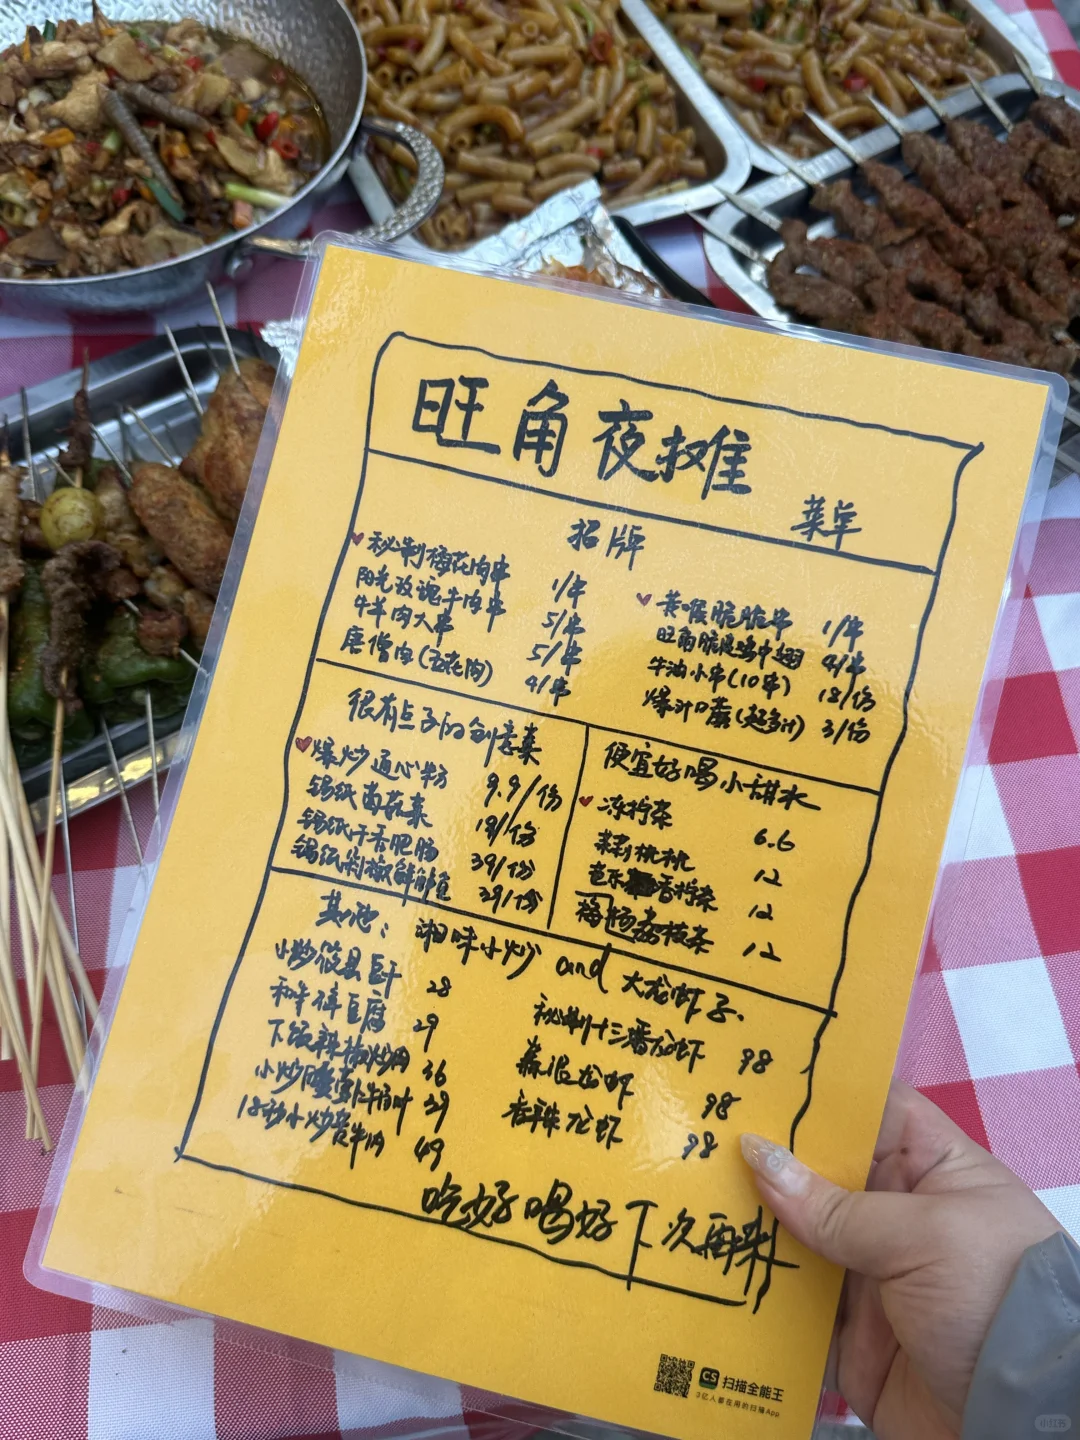 旺角夜摊
菜单
招牌
秘制梅花肉串 1/串
阳光玫瑰牛肉串 5/串
牛羊肉大串 5/串
唐僧肉(五花肉) 4/串
黄喉脆脆串 1/串
旺角脆皮鸡中翅 4/串
牛油小串(10串) 18/份
爆汁口蘑(超多汁) 3/份
很有点子的创意菜
爆炒通心粉 9.9/份
锡纸菌菇菜 18/份
锡纸千香肥肠 39/份
锡纸剁椒鲜鲍鱼 39/份
便宜好喝小甜水
冻柠茶 6.6
茉莉桃桃 12
芭乐香柠茶 12
杨荔枝茶 12
其他:湘味小炒 and 大龙虾子.
小炒攸县香干 28
和牛碎豆腐 29
下饭辣椒炒肉 36
小炒牛肚叶 39
18秒小炒黄牛肉 49
秘制十三香龙虾 98
蒜泥龙虾 98
香辣龙虾 98
吃好喝好下次再来
CS 扫描全能王
3亿人都在用的扫描App
小红书